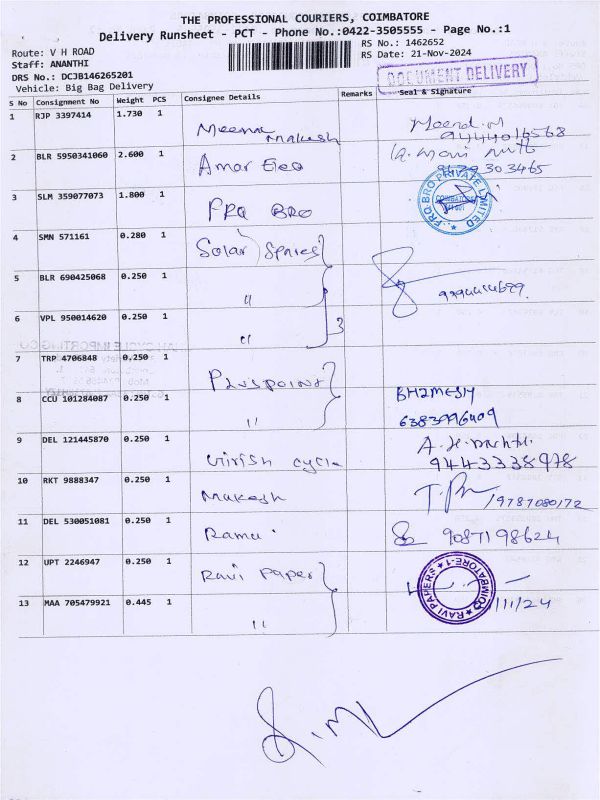 THE PROFESSIONAL COURIERS, COIMBATORE
Delivery Runsheet - PCT - Phone No.:0422-3505555 - Page No.:1
Route: V H ROAD
RS No.: 1462652
Staff: ANANTHI
RS Date: 21-Nov-2024
DRS No.: DCJB146265201
DOCUMENT DELIVERY
Vehicle: Big Bag Delivery
S No Consignment No Weight PCS Consignee Details Remarks Seal & Signature
1 RJP 3397414 1.730 1 Meena Makesh
9444016568
2 BLR 5950341060 2.600 1 Amar Geo
303465
3 SLM 359077073 1.800 1 FRQ BRO
FRQ BRO PRIVATE LIMITED
COIMBATORE
4 SMN 571161 0.280 1 Solar Spares
5 BLR 690425068 0.250 1 "
6 VPL 950014620 0.250 1 " 3
7 TRP 4706848 0.250 1 Pluspoint
8 CCU 101284087 0.250 1 "
6383996409
9 DEL 121445870 0.250 1 Girish cycle
9443338978
10 RKT 9888347 0.250 1 Mukesh
9787080172
11 DEL 530051081 0.250 1 Ramu
9087198624
12 UPT 2246947 0.250 1 Ravi Paper
RAVI PAPERS COIMBATORE-1
13 MAA 705479921 0.445 1 "
/11/24